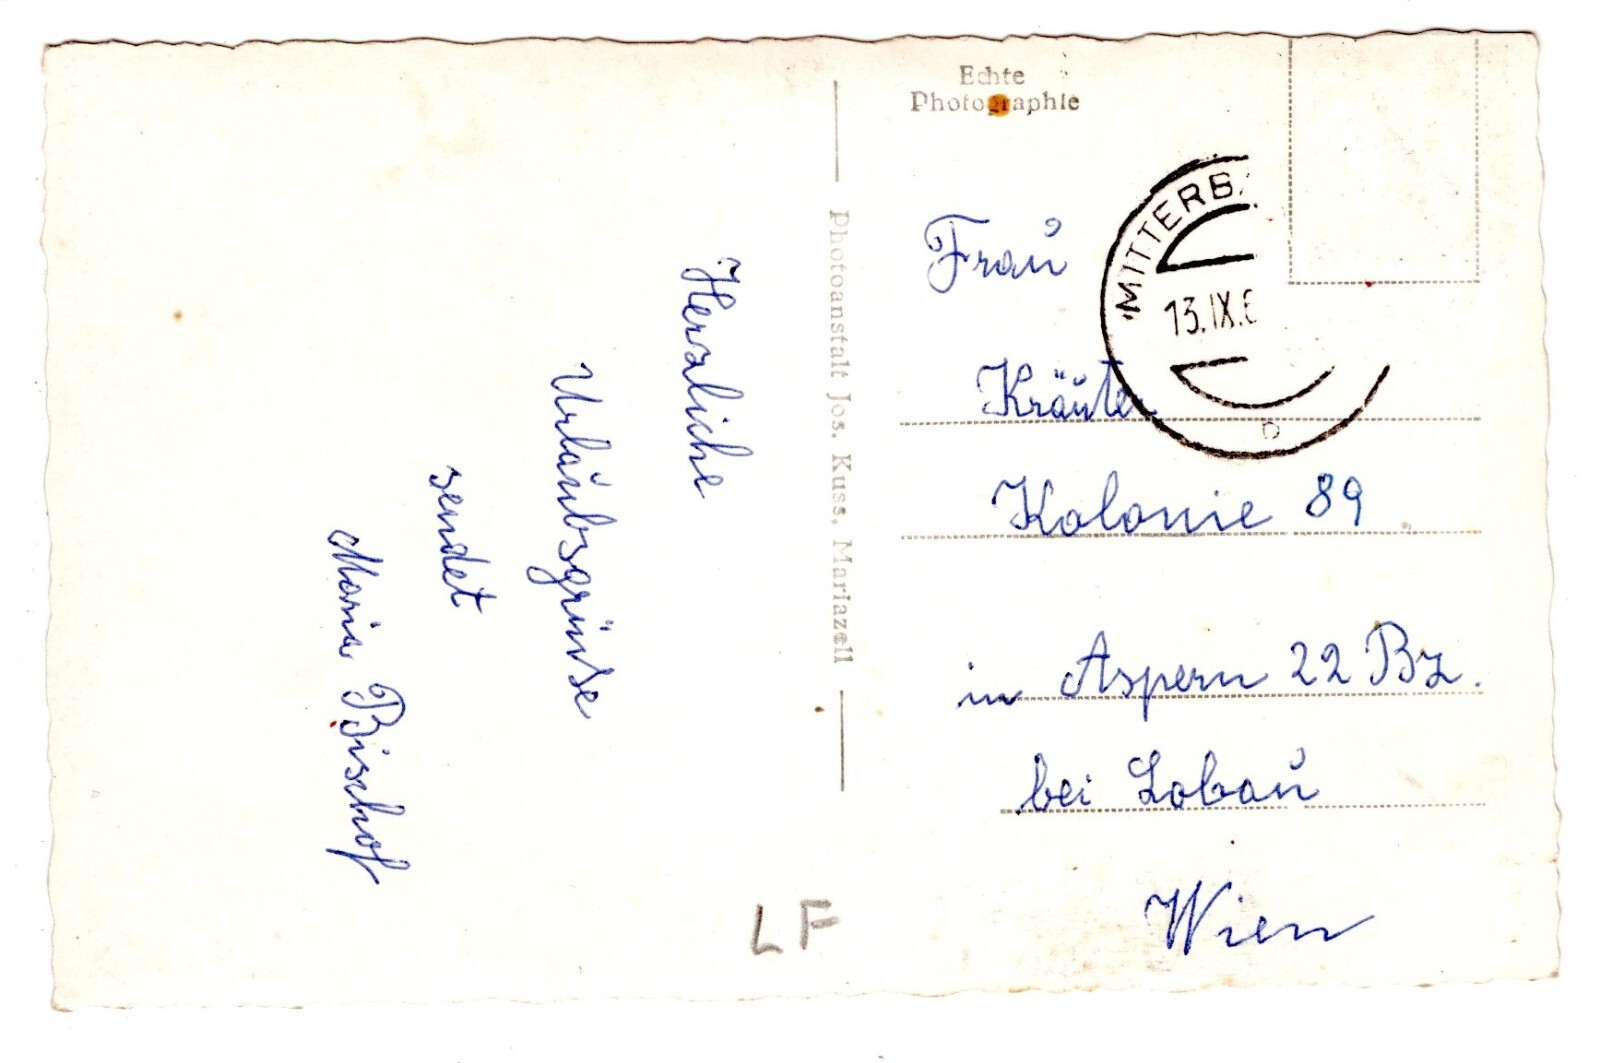 Echte
Photographie
Photoanstalt Jos. Kuss, Mariazell
MITTERB
13.IX.6
b
Herzliche
Urlaubsgrüße
sendet
Maria Bischof
Frau
Kräuter
Kolonie 89
in Aspern 22 Bz.
bei Lobau
Wien
LF